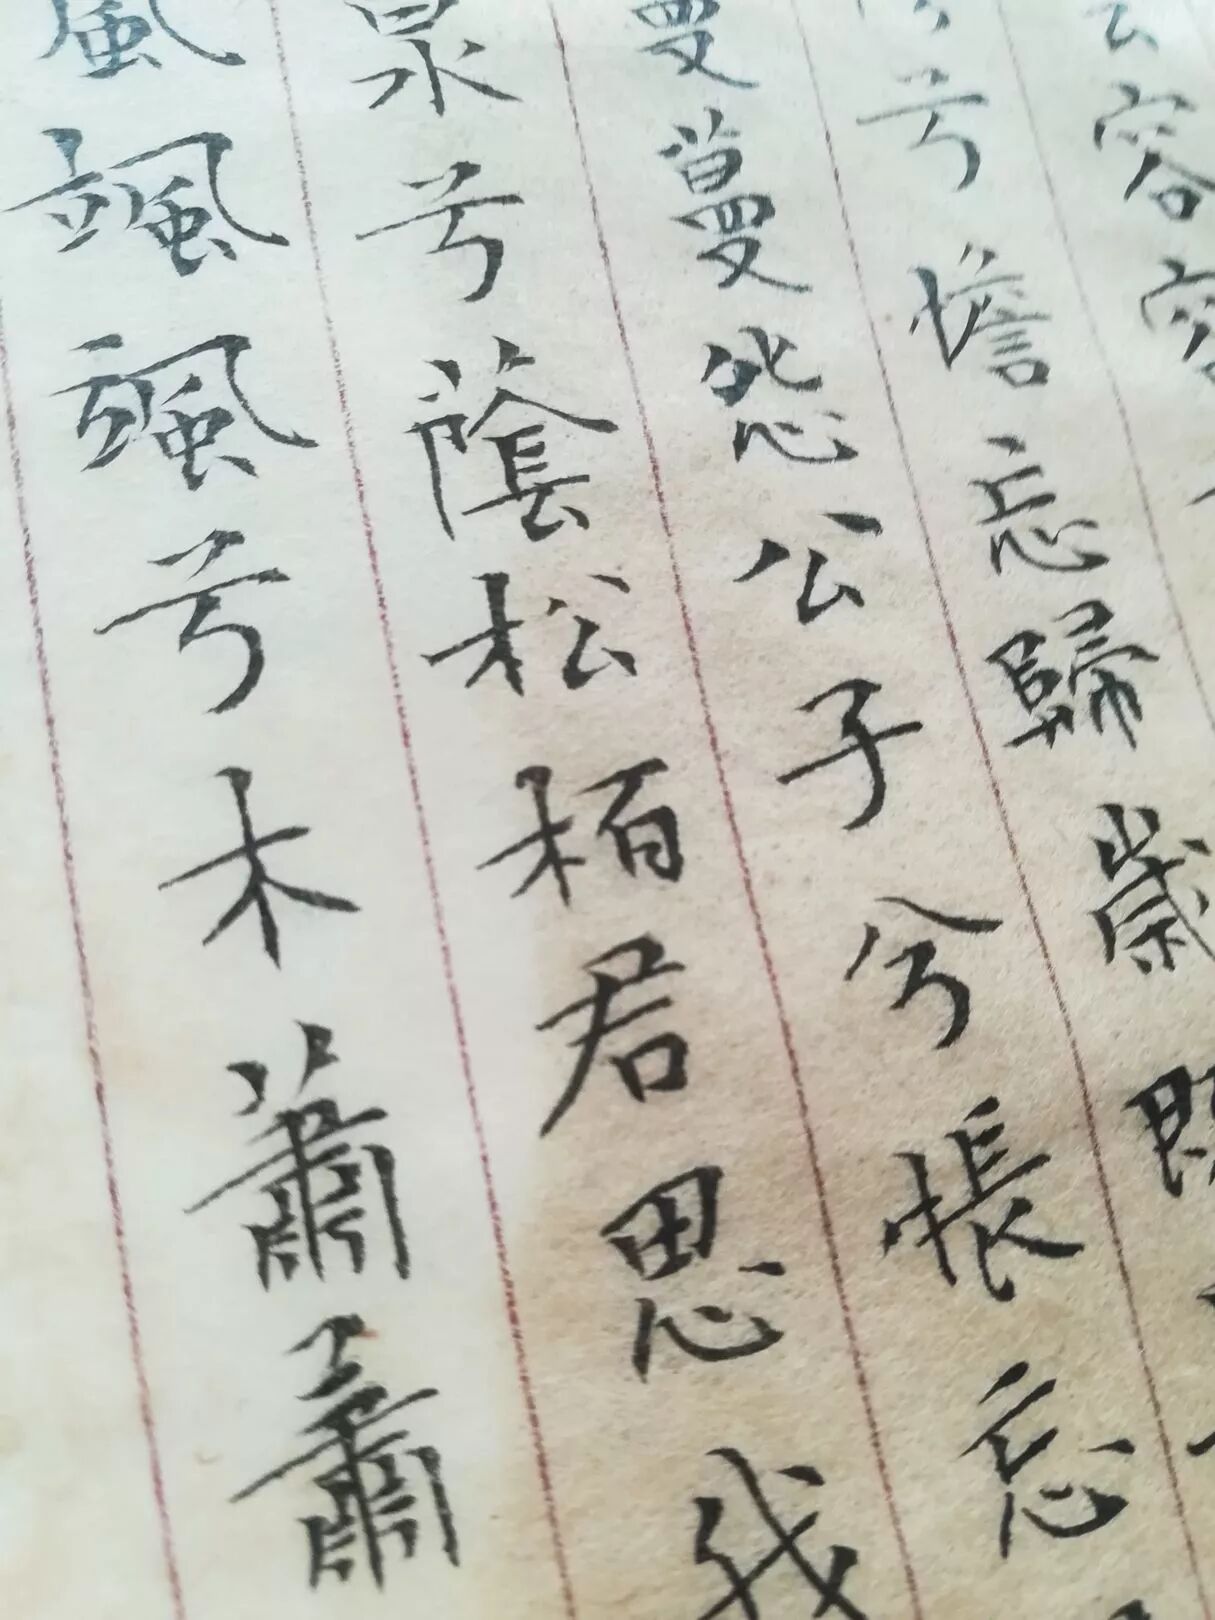 云容容
兮憺忘歸歲既
蔓蔓怨公子兮悵忘
泉兮蔭松栢君思我
風颯颯兮木蕭蕭